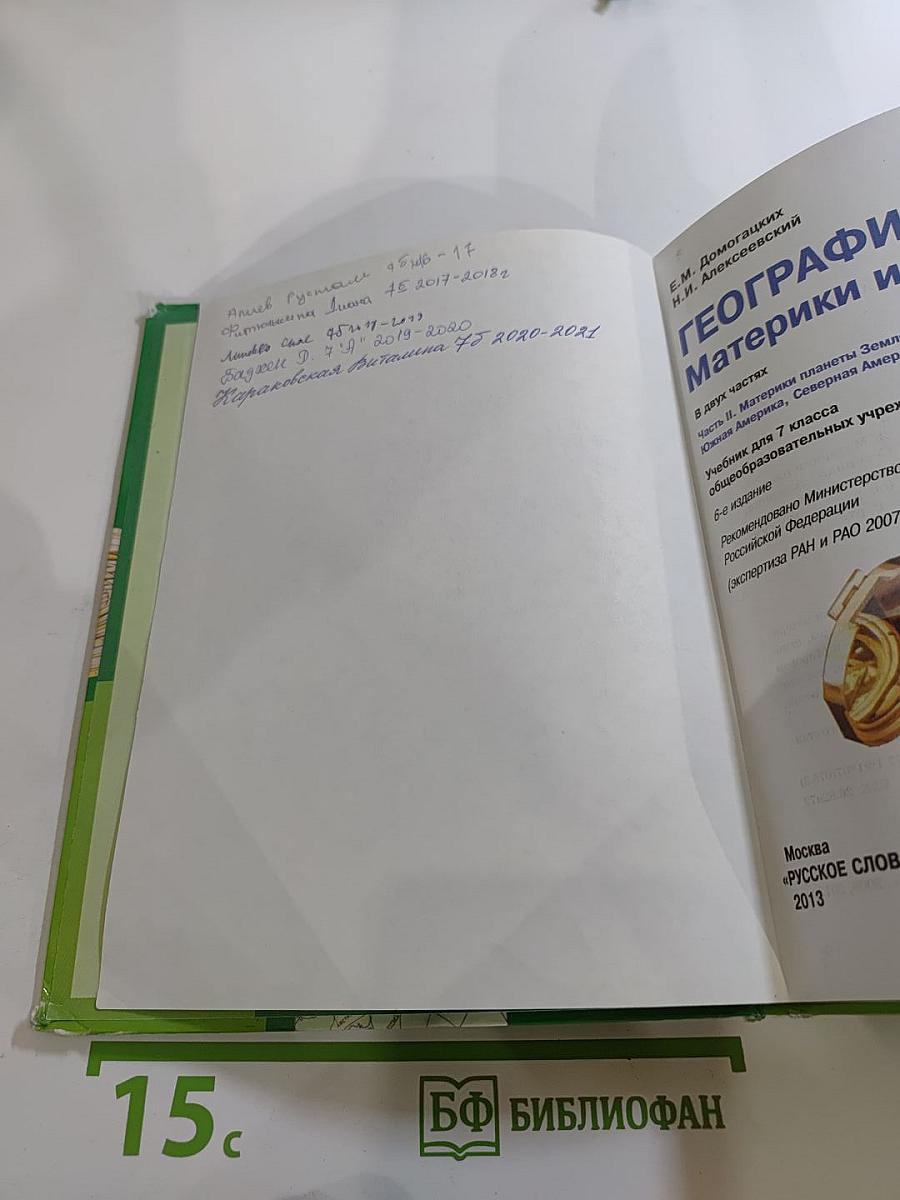 Алиев Рустам 7б 16-17
Диана 7Б 2017-2018г
7б
Баджек D. 7"А" 2019-2020
Караковская Виталина 7б 2020-2021
Е.М. Домогацких
Н.И. Алексеевский
ГЕОГРАФИ
Материки и
В двух частях
Часть II. Материки планеты Земл
Южная Америка, Северная Амер
Учебник для 7 класса
общеобразовательных учреж
6-е издание
Рекомендовано Министерство
Российской Федерации
(экспертиза РАН и РАО 2007
Москва
«РУССКОЕ СЛОВ
2013
15 с
БФ БИБЛИОФАН